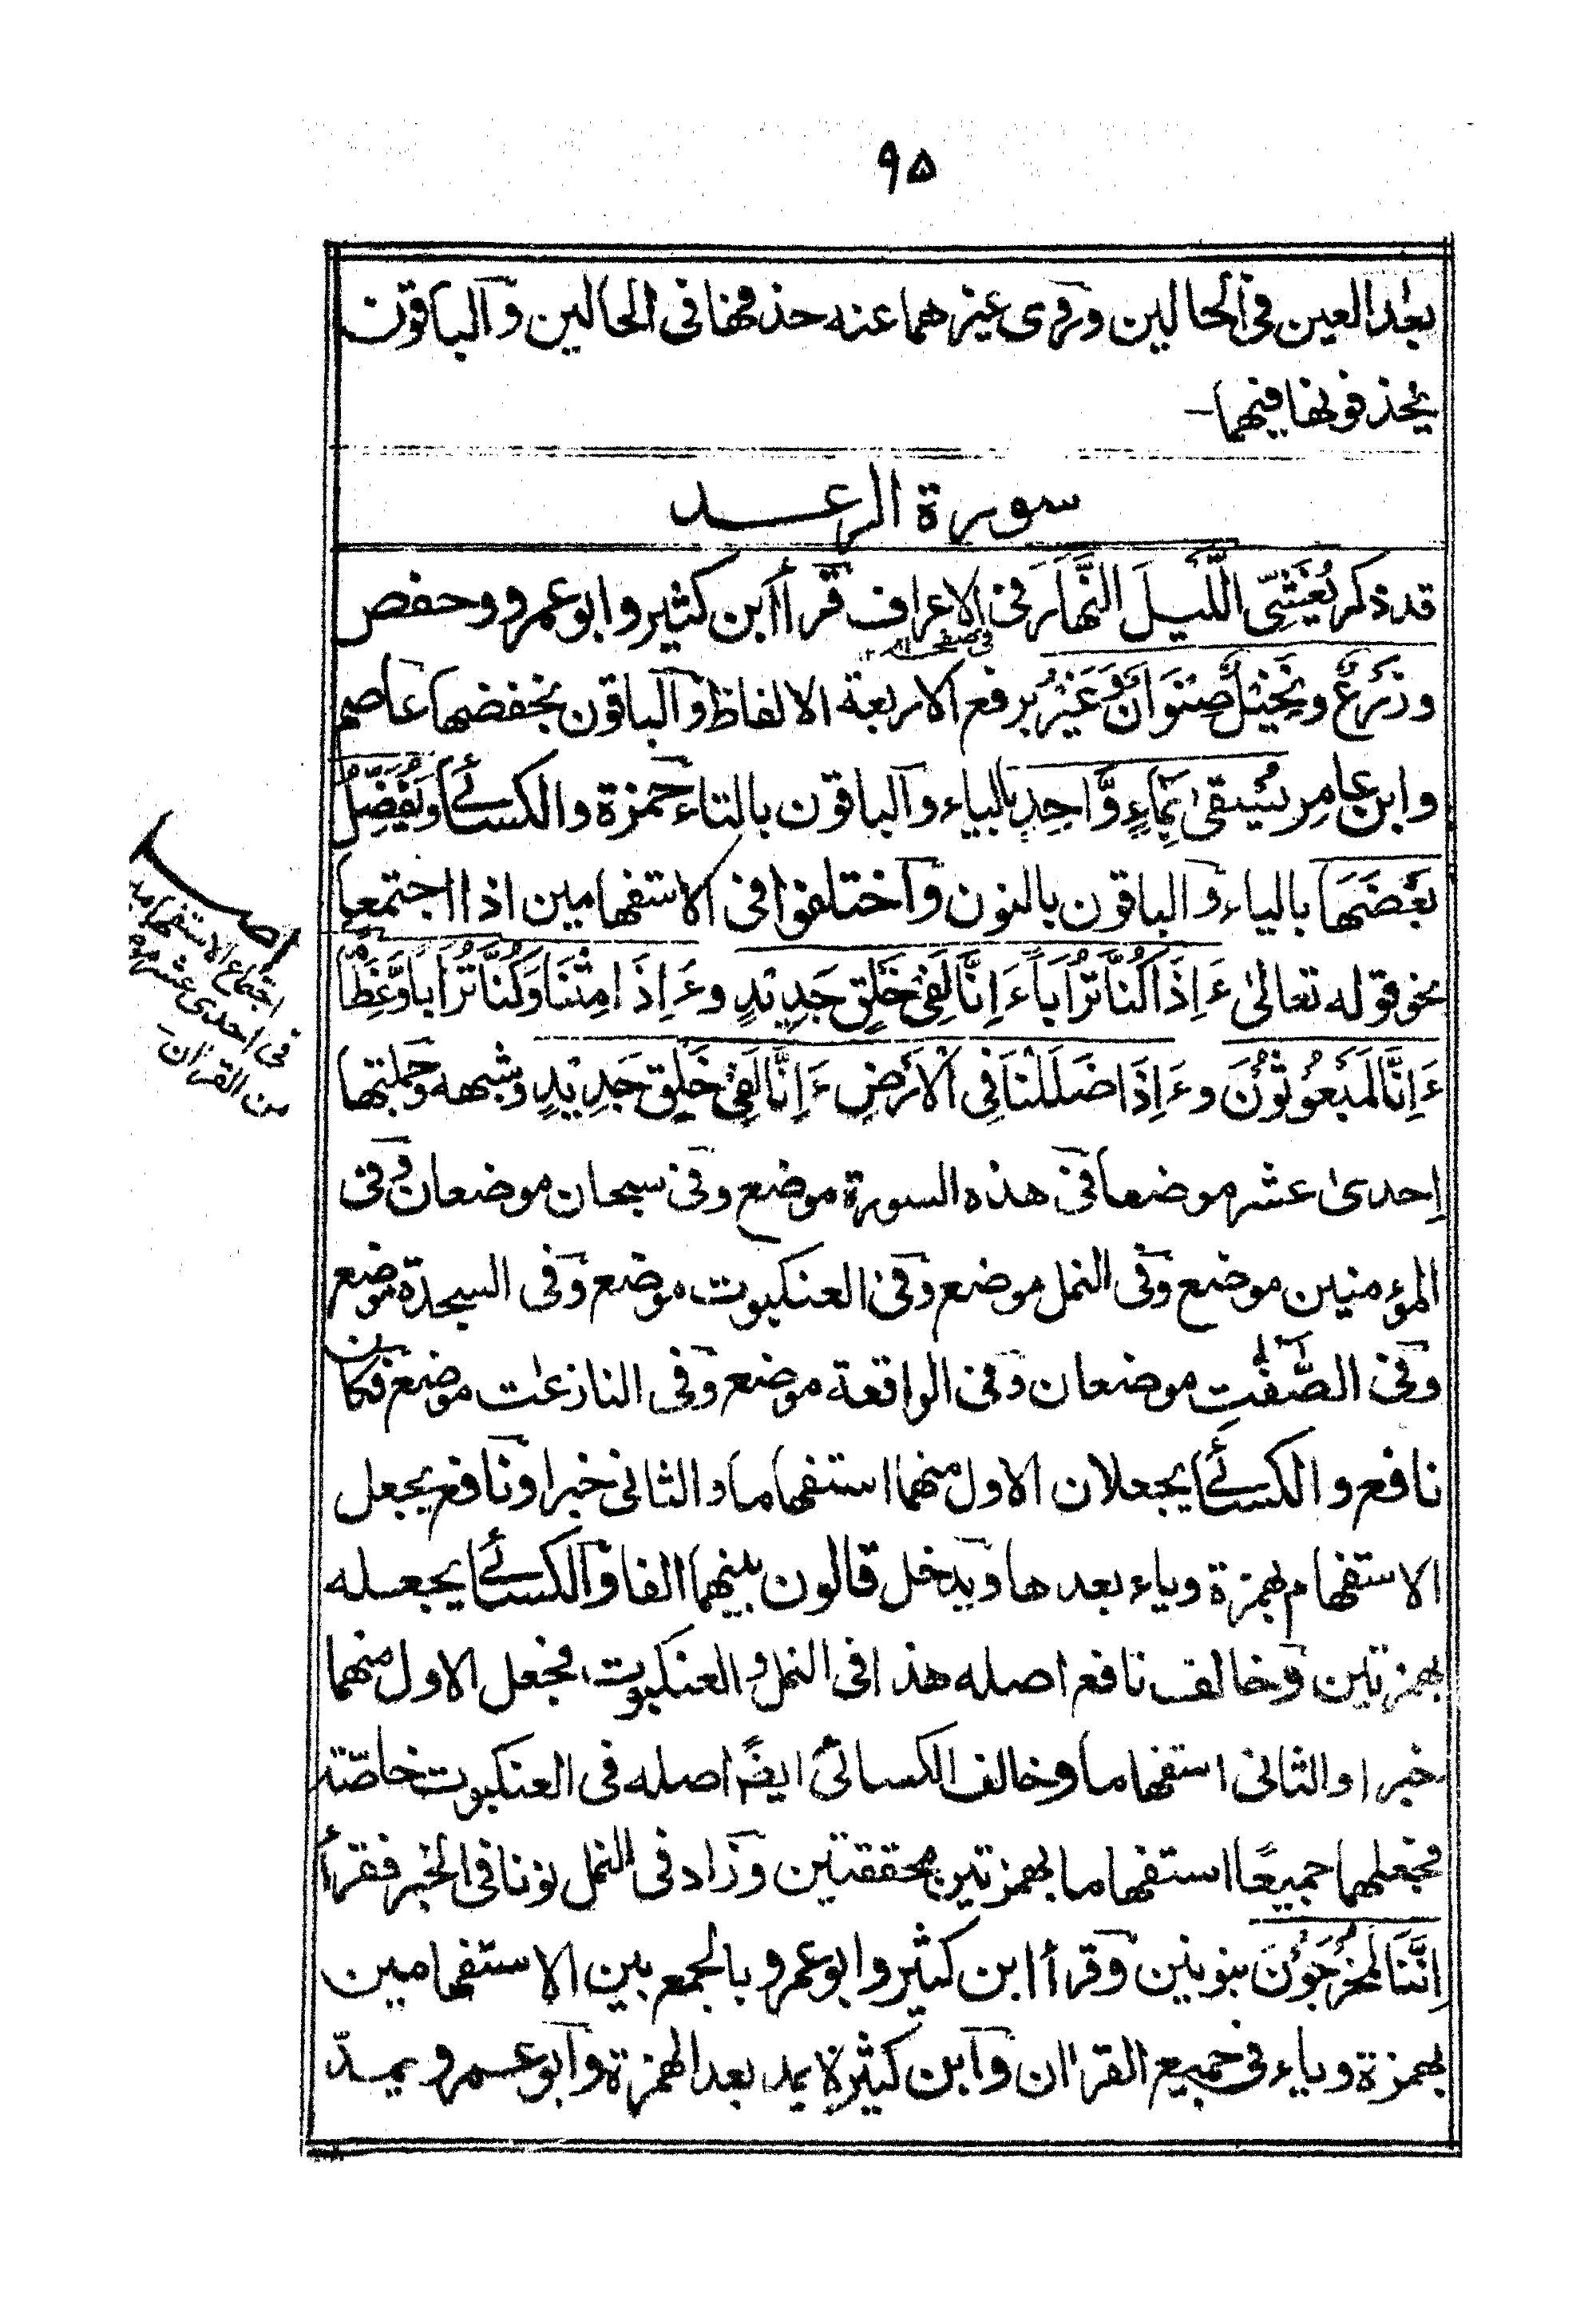 ۹۵
بعد العين فى الحالين وروى غيرهما عنه حذفها فى الحالين والباقون
يحذفونها فيهما-
سورة الرعد
قد ذكر يُغْشِى الَّيلَ النَّهَارَ فى الاعراف قرأ ابن كثير وابو عمرو وحفص
فى صفحه
وزَرْعٌ ونَخِيْلٌ صِنْوَانٌ وَّغَيْرُ برفع الاربعة الالفاظ والباقون بخفضها عاصم
وابن عامر يُسْقىٰ بِمَاءٍ وَّاحِدٍ بالياء والباقون بالتاء حمزة والكسائے وَيُفَضِّلُ
بَعْضَهَا بالياء والباقون بالنون واختلفوا فى الاستفهامين اذا اجتمعا
نحو قوله تعالىٰ ءَاِذَا كُنَّا تُرَاباً ءَاِنَّا لَفِىْ خَلْقٍ جَدِيْدٍ وءَاِذَا مِتْنَا وَكُنَّا تُرَابًا وَّعِظَامًا
ءَاِنَّا لَمَبْعُوْثُوْنَ وءَاِذَا ضَلَلْنَا فِى الْاَرْضِ ءَاِنَّا لَفِىْ خَلْقٍ جَدِيْدٍ وشبهه وجملتها
اِحدىٰ عشر موضعا فى هذه السورة موضع وفى سبحان موضعان وفى
المؤمنين موضع وفى النمل موضع وفى العنكبوت موضع وفى السجدة موضع
وفى الصّٰفّٰتِ موضعان وفى الواقعة موضع وفى النازعٰت موضع فكان
نافع والكسائے يجعلان الاول منهما استفهاما والثانى خبرا ونافع يجعل
الاستفهام بهمزة وياء بعدها ويدخل قالون بينهما الفا والكسائے يجعله
بهمزتين وخالف نافع اصله هذا فى النمل والعنكبوت فجعل الاول منهما
خبرا والثانى استفهاما وخالف الكسائى ايضًا اصله فى العنكبوت خاصّة
فجعلهما جميعًا استفهاما بهمزتين محققتين وزاد فى النمل نونا فى الخبر فقرأ
اِنَّنَا لَمُخْرَجُوْنَ بنونين وقرأ ابن كثير وابو عمرو بالجمع بين الاستفهامين
بهمزة وياء فى جميع القراٰن وابن كثير لا يمد بعد الهمزة وابو عمرو يمدّ
اصل
اجتماع الاستفهامين
فى احدى عشر
من القراٰن